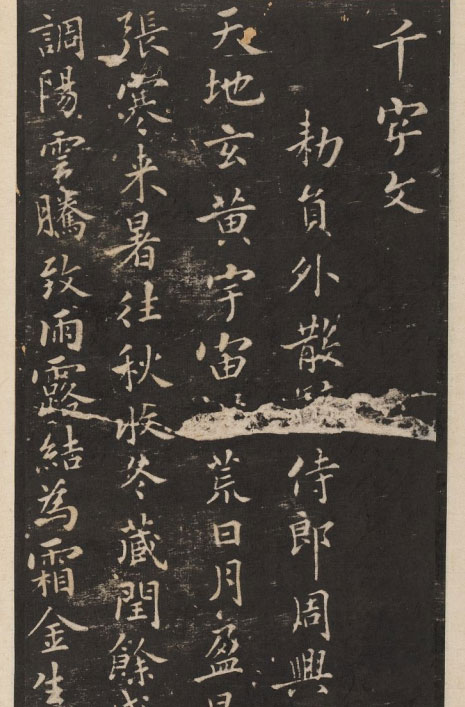 千字文
勅員外散侍郎周興
天地玄黃宇宙荒日月盈
張寒来暑往秋收冬藏閏餘
調陽雲騰致雨露結為霜金生